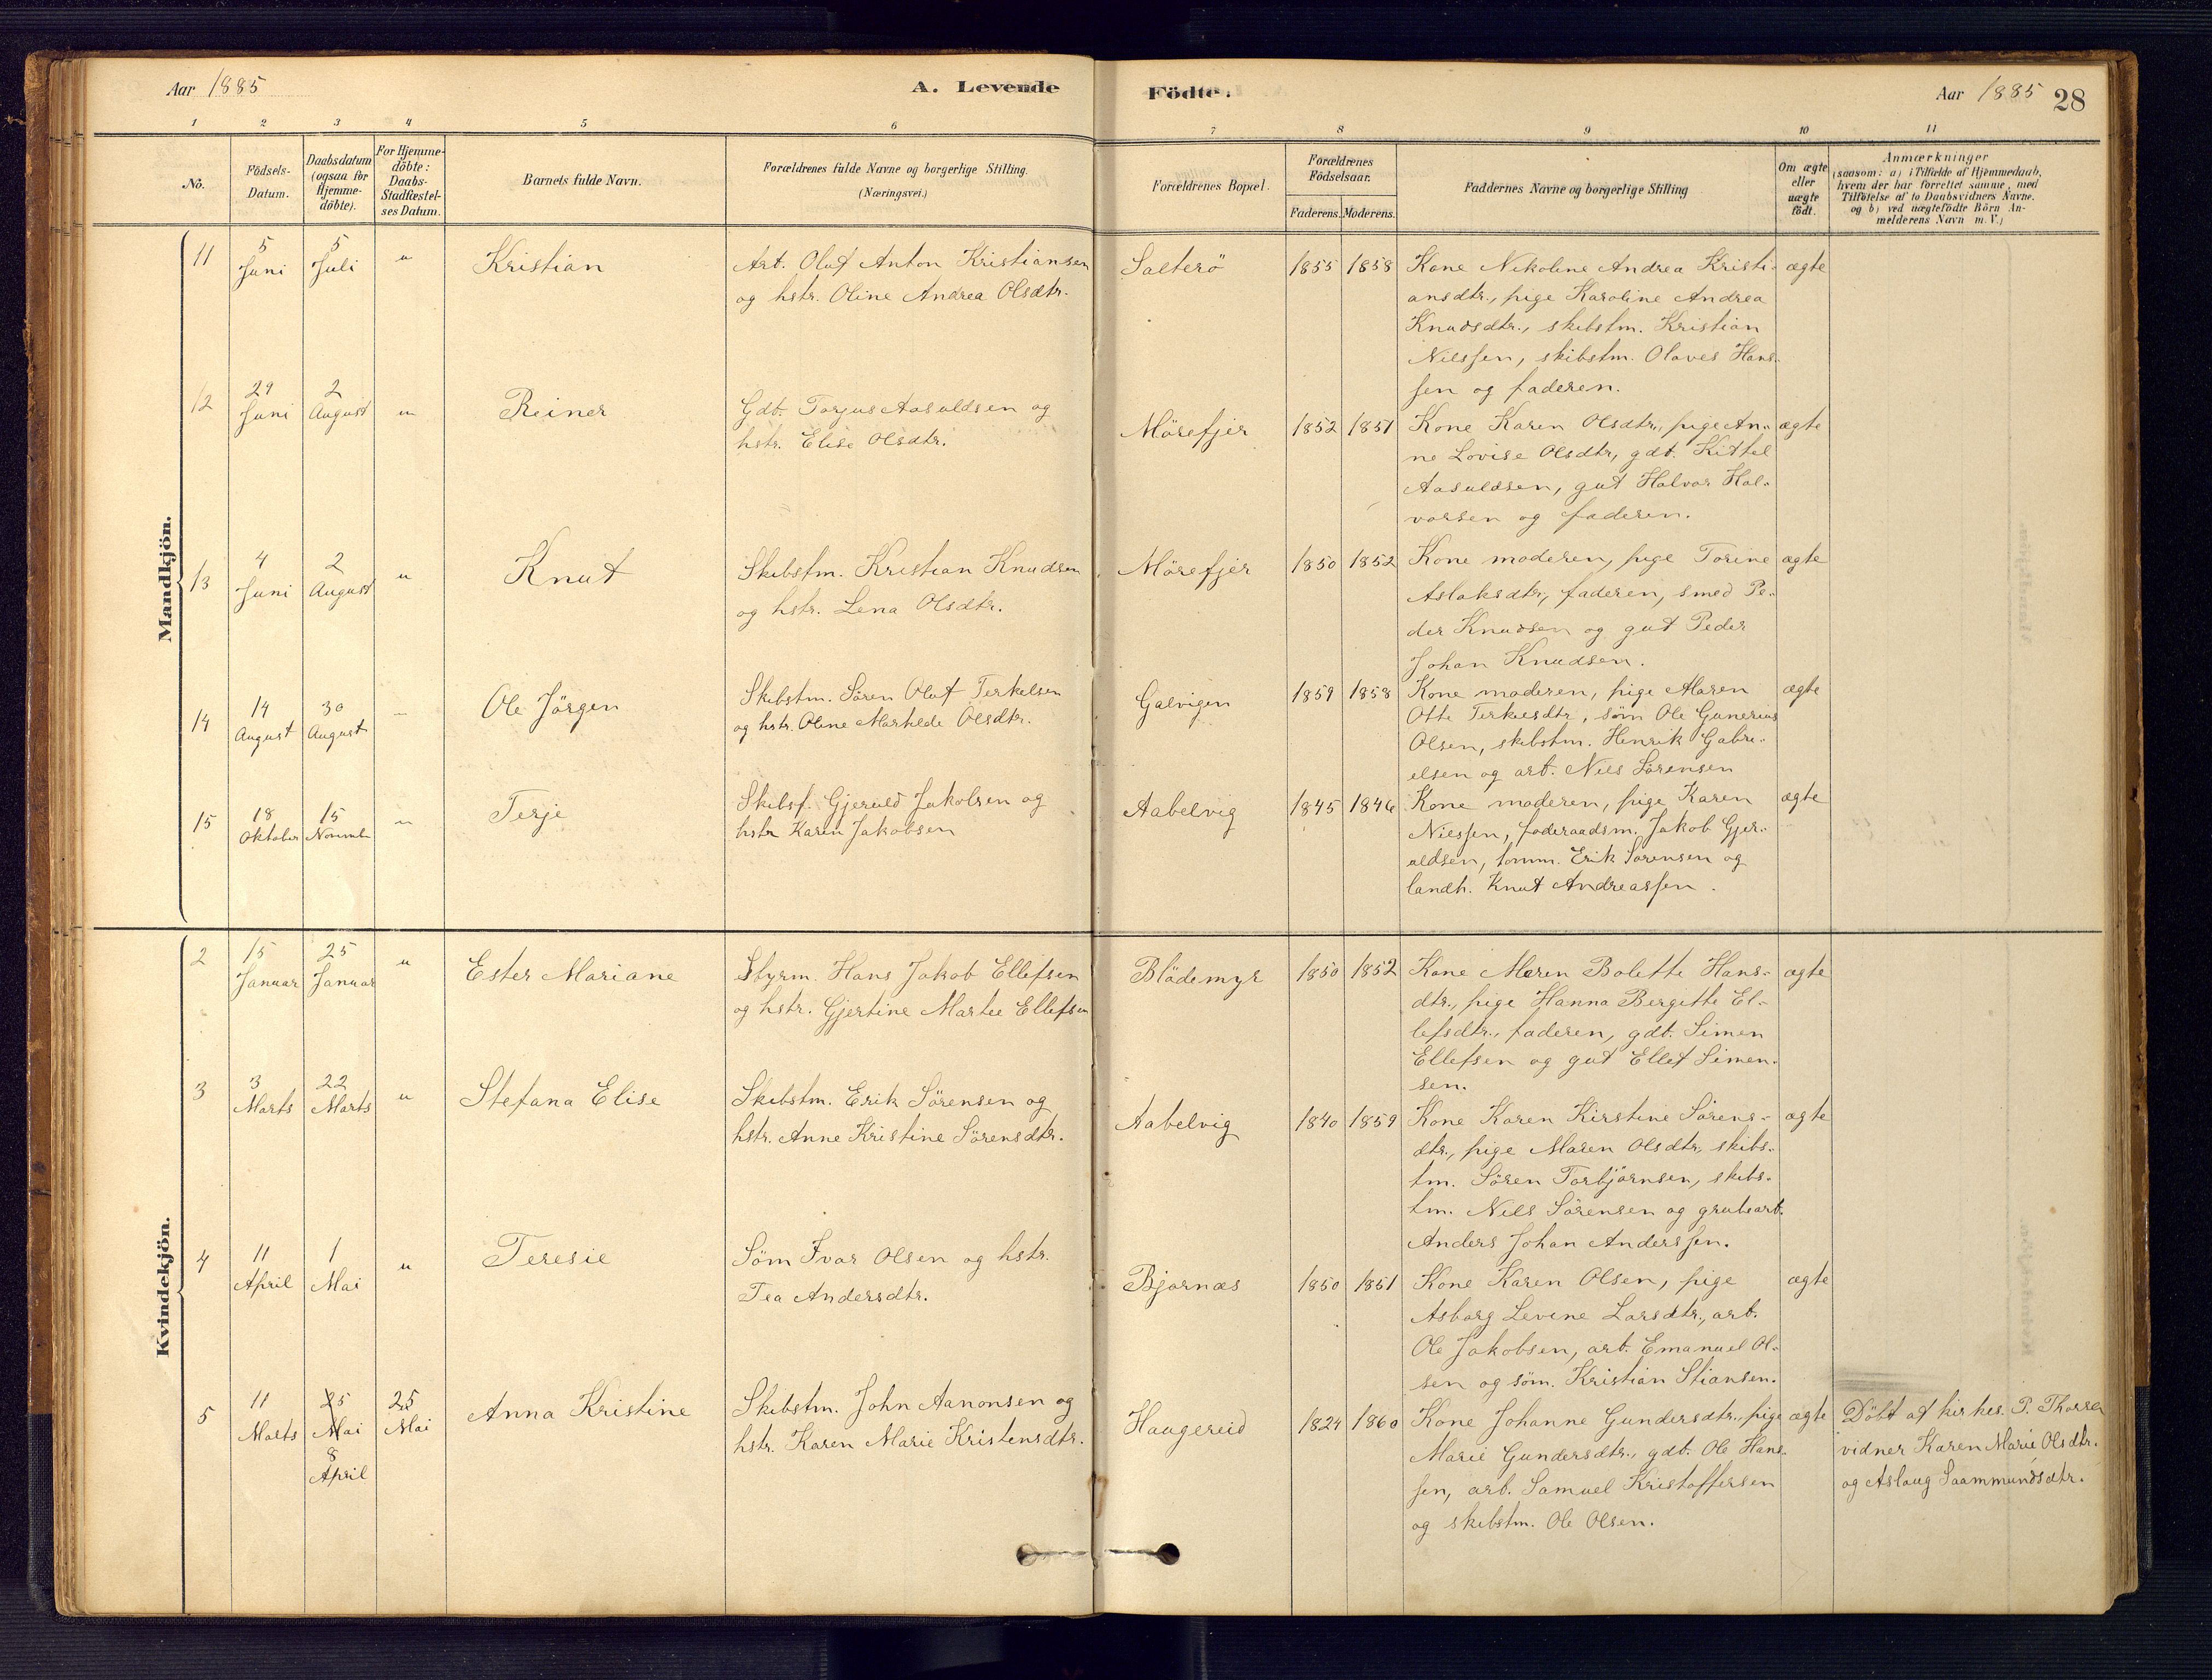 Aar 1885
A. Levende
Födte.
Aar 1885
28
1 2 3 4 5 6 7 8 9 10 11
No.
Födsels-Datum.
Daabsdatum (ogsaa for Hjemme-döbte).
For Hjemme-döbte: Daabs-Stadfæstel-ses Datum.
Barnets fulde Navn.
Forældrenes fulde Navne og borgerlige Stilling.
(Næringsvei.)
Forældrenes Bopæl.
Forældrenes Födselsaar.
Faderens. Moderens.
Faddernes Navne og borgerlige Stilling
Om ægte eller uægte födt.
Anmærkninger
(saasom: a) i Tilfælde af Hjemmedaab,
hvem der har forrettet samme, med
Tilföielse af to Daabsvidners Navne.
og b) ved uægtefödte Börn An-
melderens Navn m. V.)
Mandkjön.
11 5 Juni 5 Juli " Kristian
Art. Oluf Anton Kristiansen
og hstr. Oline Andrea Olsdtr.
Salterö 1855 1858
Kone Nikoline Andrea Kristi-
ansdtr., pige Karoline Andrea
Knudsdtr., skibstm. Kristian
Nilssen, skibstm. Olaves Hans-
sen og faderen.
ægte
12 29 Juni 2 August " Reiner
Gdb. Torjus Aasuldsen og
hstr. Elise Olsdtr.
Mörefjer 1852 1857
Kone Karen Olsdtr., pige An-
ne Lovise Olsdtr, gdb. Kittel
Aasuldsen, gut Halvor Hal-
vorsen og faderen.
ægte
13 4 Juni 2 August " Knut
Skibstm. Kristian Knudsen
og hstr. Lena Olsdtr.
Mörefjer 1850 1852
Kone moderen, pige Torine
Aslaksdtr., faderen, smed Pe-
der Knudsen og gut Peder
Johan Knudsen.
ægte
14 14 August 30 August " Ole Jörgen
Skibstm. Sören Oluf Terkelsen
og hstr. Oline Mathilde Olsdtr.
Galvigen 1859 1858
Kone moderen, pige Maren
Otte Terkelsdtr, söm Ole Gunerius
Olsen, skibstm. Henrik Gabri-
elsen og arb. Niels Sörensen
ægte
15 18 Oktober 15 Novemb " Terje
Skibsf. Gjeruld Jakobsen og
hstr Karen Jakobsen
Aabelvig 1845 1846
Kone moderen, pige Karen
Nielssen, föderaadsm. Jakob Gjer-
uldsen, tomm. Erik Sörensen og
landh. Knut Andreassen.
ægte
Kvindekjön.
2 15 Januar 25 Januar " Ester Mariane
Styrm. Hans Jakob Ellefsen
og hstr. Gjertine Marte Ellefsen
Blödemyr 1850 1852
Kone Maren Bolette Hans-
dtr., pige Hanna Bergitte El-
lefsdtr., faderen, gdb. Simen
Ellefsen og gut Ellef Simen-
sen.
ægte
3 3 Marts 22 Marts " Stefana Elise
Skibstm. Erik Sörensen og
hstr. Anne Kristine Sörensdtr.
Aabelvig 1840 1859
Kone Karen Kirstine Sörens-
dtr., pige Maren Olsdtr., skibs-
tm. Sören Torbjörnsen, skibs-
tm. Nils Sörensen og grubearb.
Anders Johan Anderssen.
ægte
4 11 April 1 Mai " Teresie
Söm Ivar Olsen og hstr.
Tea Andersdtr.
Bjornæs 1850 1851
Kone Karen Olsen, pige
Asborg Levine Larsdtr., arb.
Ole Jakobsen, arb. Emanuel Ol-
sen og söm. Kristian Stiansen.
ægte
5 11 Marts 25 Mai 8 April 25 Mai Anna Kristine
Skibstm. John Aanonsen og
hstr. Karen Marie Kristensdtr.
Haugereid 1824 1860
Kone Johanne Gundersdtr., pige
Marie Gundersdtr., gdb. Ole Hans-
sen, arb. Samuel Kristoffersen
og skibstm. Ole Olsen.
ægte
Döbt af kirkes. P. Thorsen
vidner Karen Marie Olsdtr.
og Aslaug Saammundsdtr.